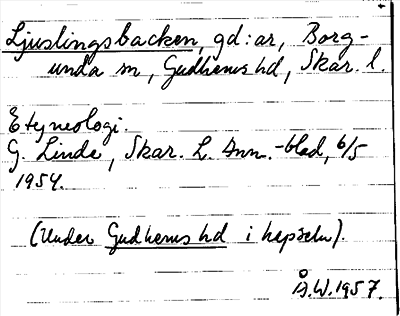 Ljuslingsbacken, gd:ar, Borg-
unda sn, Gudhems hd, Skar. l.
Etymologi.
G. Linde, Skar. L. Ann.-blad, 6/5
1954.
(Under Gudhems hd i kapseln).
B.W. 1957.